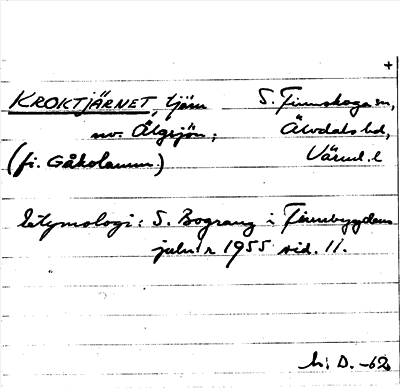 +
KROKTJÄRNET, tjärn S. Finnskoga sn,
nv. Älgsjön; Älvdals hd,
(fi. Gåkolamm) Värml. l
Etymologi: S. Bograng i Finnbygdens
julnr 1955 sid. 11.
L: D. -62